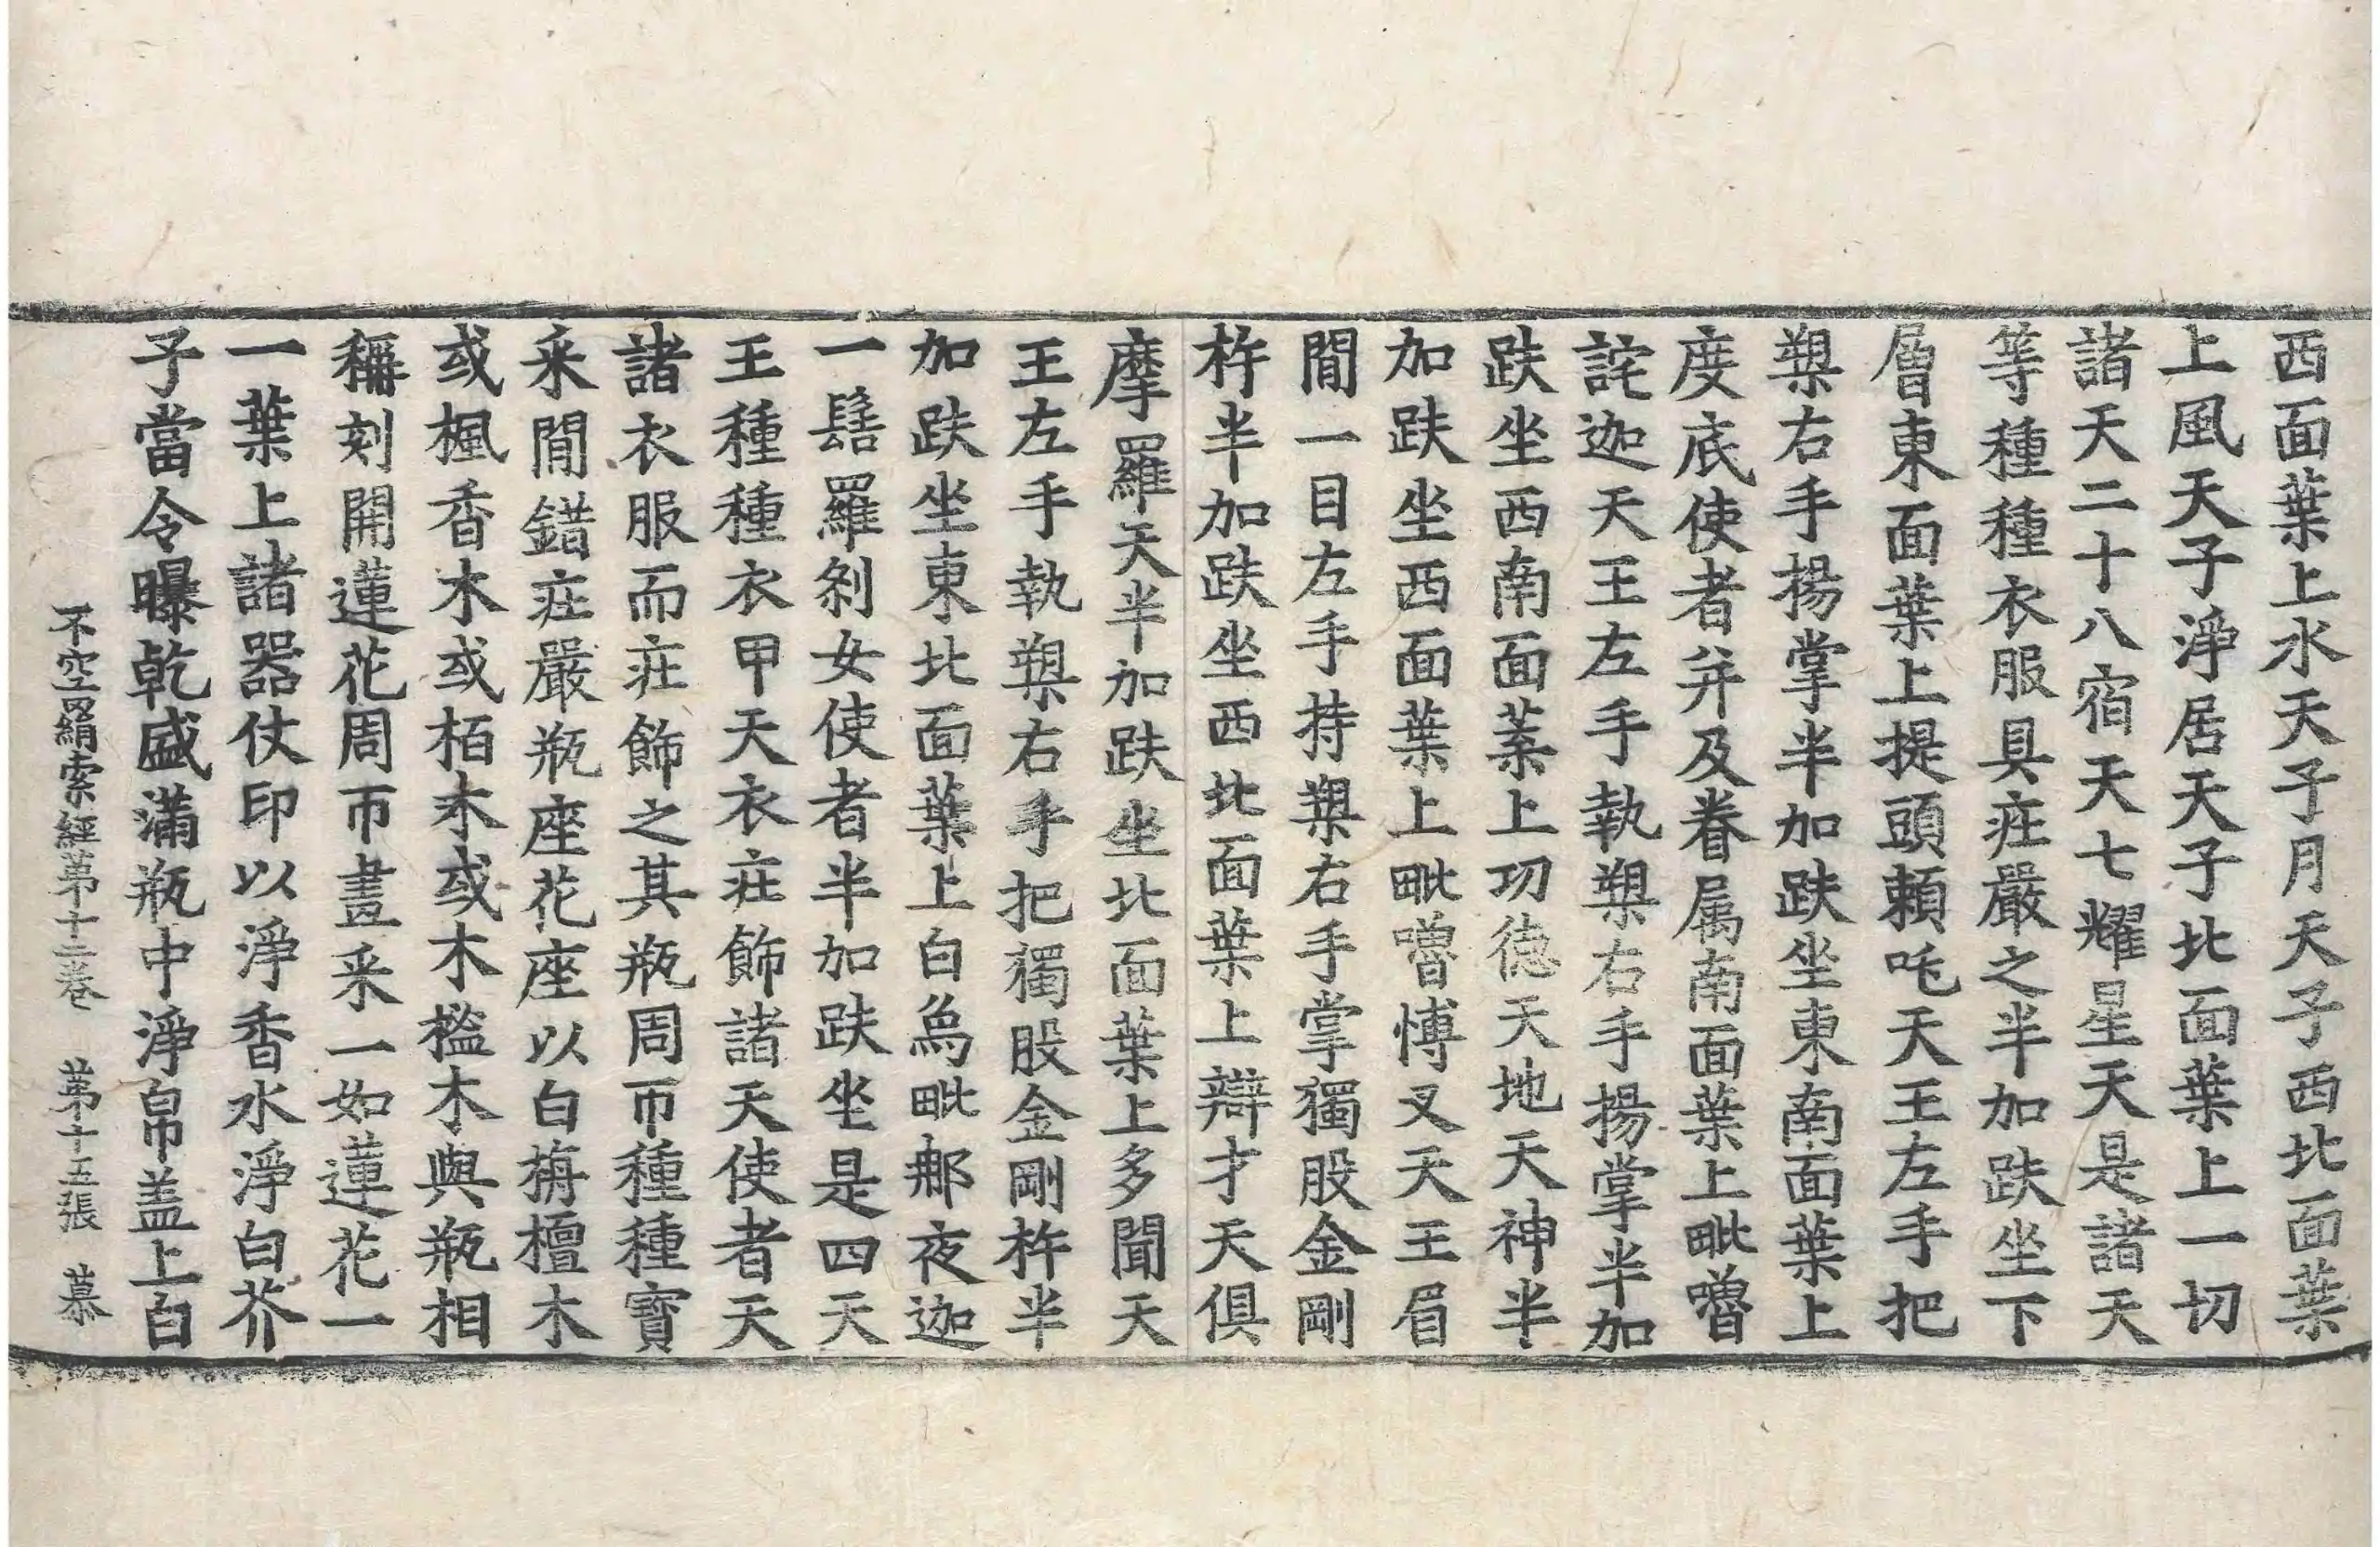 西面葉上水天子月天子西北面葉
上風天子淨居天子北面葉上一切
諸天二十八宿天七耀星天是諸天
等種種衣服具庄嚴之半加趺坐下
層東面葉上提頭頼吒天王左手把
槊右手揚掌半加趺坐東南面葉上
度底使者并及眷属南面葉上毗嚕
詫迦天王左手執槊右手揚掌半加
趺坐西南面葉上功德天地天神半
加趺坐西面葉上毗嚕博叉天王眉
間一目左手持槊右手掌獨股金剛
杵半加趺坐西北面葉上辯才天俱
摩羅天半加趺坐北面葉上多聞天
王左手執槊右手把獨股金剛杵半
加趺坐東北面葉上白烏毗那夜迦
一髻羅剎女使者半加趺坐是四天
王種種衣甲天衣庄飾諸天使者天
諸衣服而庄飾之其瓶周帀種種寶
采間錯庄嚴瓶座花座以白栴檀木
或楓香木或栢木或木檻木與瓶相
稱刻開蓮花周帀畫采一如蓮花一
一葉上諸器仗印以淨香水淨白芥
子當令曝乾盛滿瓶中淨帛盖上白
不空羂索經第十二卷　第十五張　慕